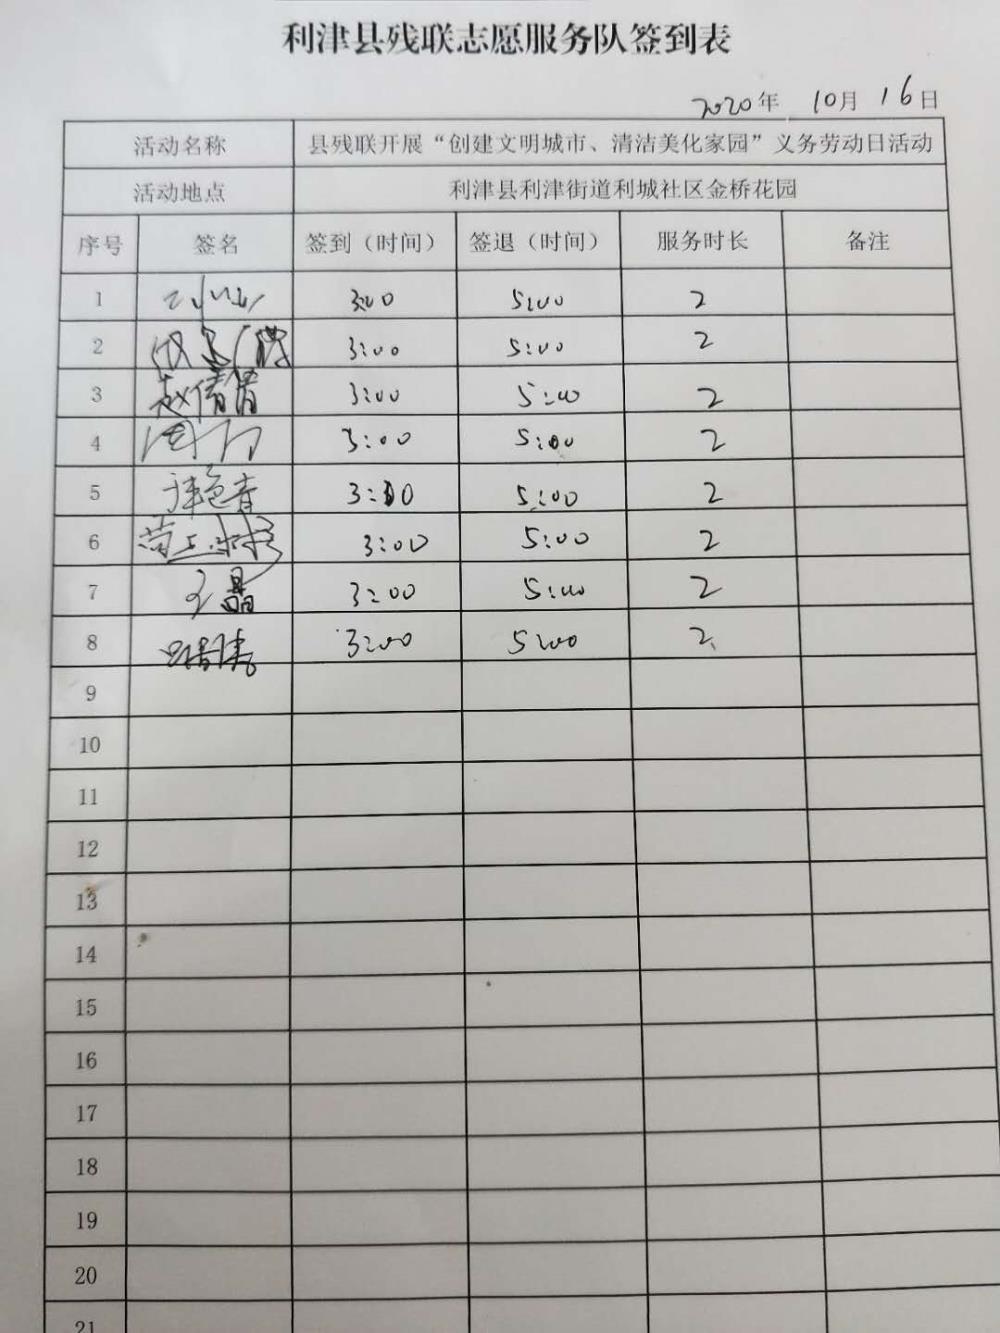 利津县残联志愿服务队签到表
2020年 10月 16日
活动名称 县残联开展“创建文明城市、清洁美化家园”义务劳动日活动
活动地点 利津县利津街道利城社区金桥花园
序号 签名 签到（时间） 签退（时间） 服务时长 备注
1 3:00 5:00 2
2 3:00 5:00 2
3 赵倩倩 3:00 5:00 2
4 3:00 5:00 2
5 3:00 5:00 2
6 3:00 5:00 2
7 王晶 3:00 5:00 2
8 3:00 5:00 2
9
10
11
12
13
14
15
16
17
18
19
20
21